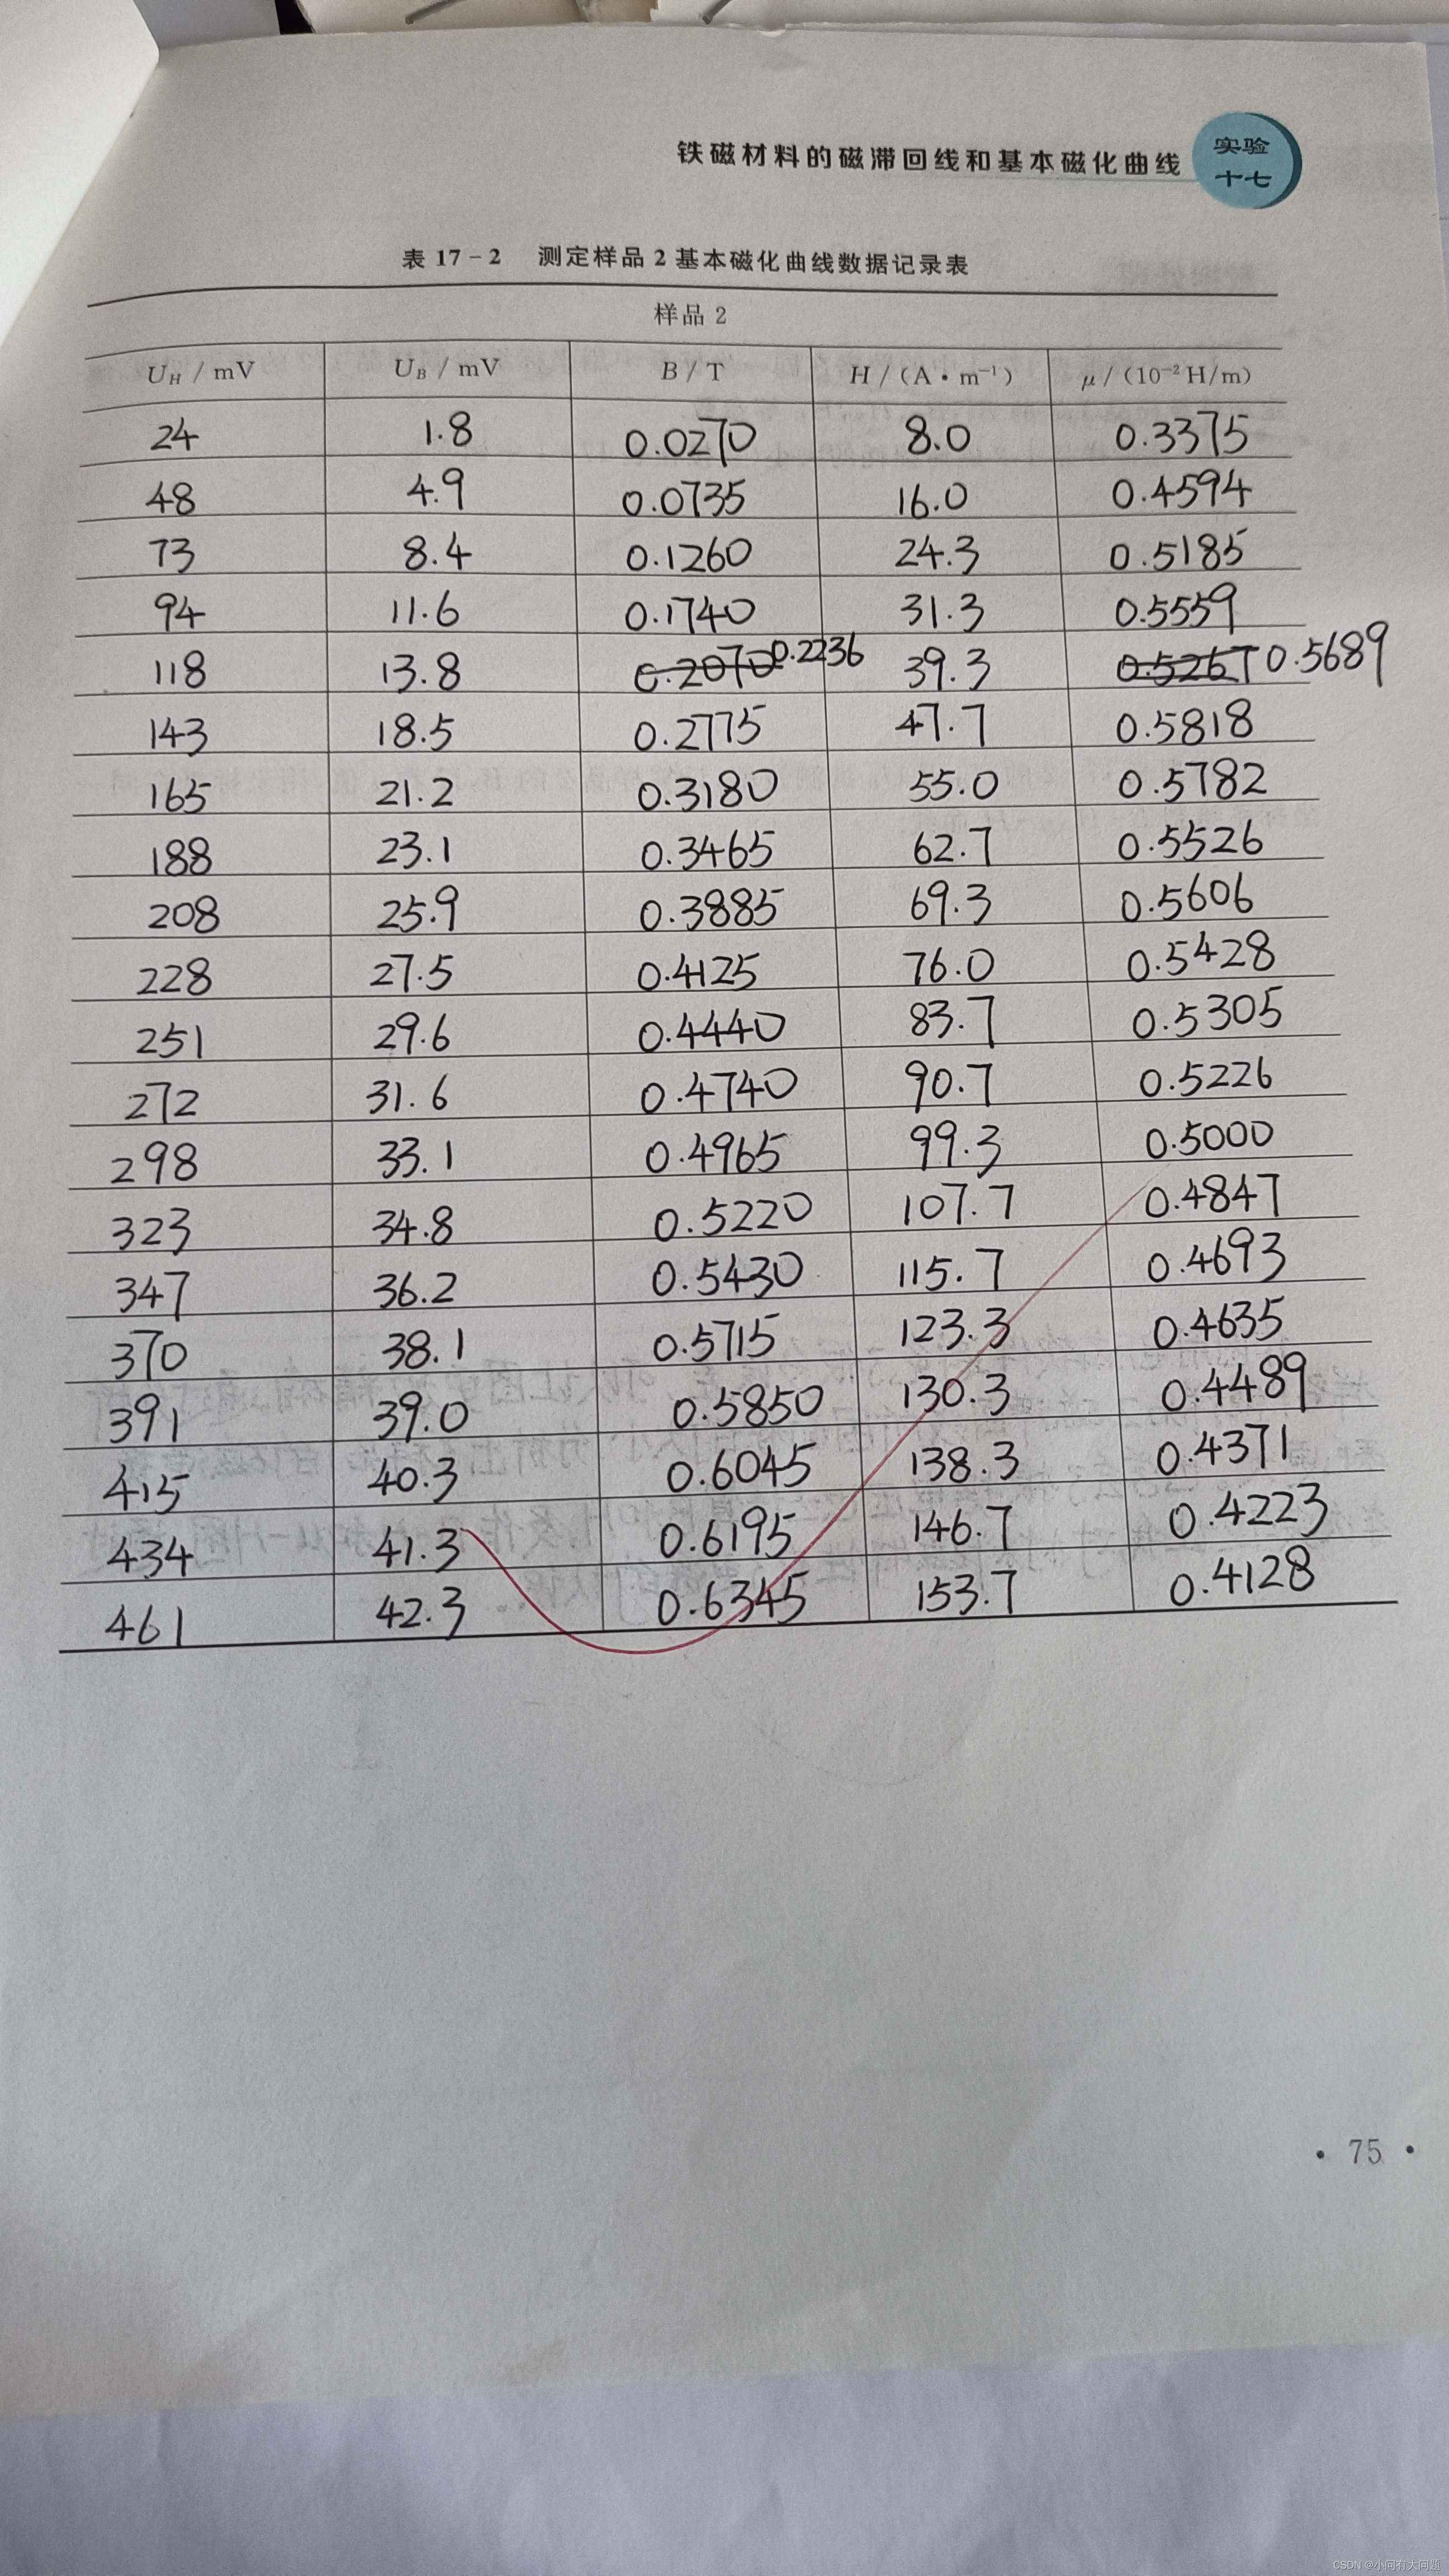 铁磁材料的磁滞回线和基本磁化曲线 实验十七
表 17-2 测定样品 2 基本磁化曲线数据记录表
样品 2
U_H / mV U_B / mV B / T H / (A·m⁻¹) μ / (10⁻² H/m)
24 1.8 0.0270 8.0 0.3375
48 4.9 0.0735 16.0 0.4594
73 8.4 0.1260 24.3 0.5185
94 11.6 0.1740 31.3 0.5559
118 13.8 0.2070 0.2236 39.3 0.5267 0.5689
143 18.5 0.2775 47.7 0.5818
165 21.2 0.3180 55.0 0.5782
188 23.1 0.3465 62.7 0.5526
208 25.9 0.3885 69.3 0.5606
228 27.5 0.4125 76.0 0.5428
251 29.6 0.4440 83.7 0.5305
272 31.6 0.4740 90.7 0.5226
298 33.1 0.4965 99.3 0.5000
323 34.8 0.5220 107.7 0.4847
347 36.2 0.5430 115.7 0.4693
370 38.1 0.5715 123.3 0.4635
391 39.0 0.5850 130.3 0.4489
415 40.3 0.6045 138.3 0.4371
434 41.3 0.6195 146.7 0.4223
461 42.3 0.6345 153.7 0.4128
· 75 ·
CSDN @小问有大问题